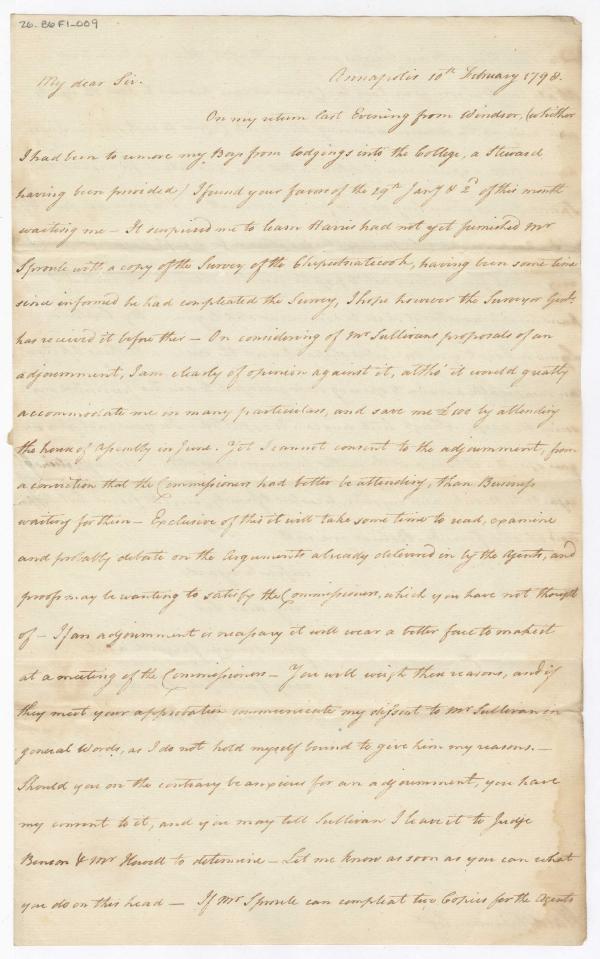 26.B6F1-009
My dear Sir. Annapolis 10th February 1798.
On my return last Evening from Windsor, (whither
I had been to remove my Boys from lodgings into the College, a Steward
having been provided) I found your favors of the 29th Jany & 2d of this month
waiting me – It surprised me to learn Harris had not yet furnished Mr
Sproule with a copy of the Survey of the Cheputnatecook, having been some time
since informed he had compleated the Survey, I hope however the Surveyor Genl.
has received it before this – On considering of Mr Sullivans proposals of an
adjournment, I am clearly of opinion against it, altho' it would greatly
accommodate me in many particulars, and save me £100 by attending
the house of Assembly in June. Yet I cannot consent to the adjournment, from
a conviction that the Commissioners had better be attending, than Business
waiting for them – Exclusive of this it will take some time to read, examine
and probably debate on the Arguments already delivered in by the Agents, and
proofs may be wanting to satisfy the Commissioners, which you have not thought
of – If an adjournment is necessary it will wear a better face to make it
at a meeting of the Commissioners – You will weigh these reasons, and if
they meet your approbation communicate my dissent to Mr Sullivan in
general Words, as I do not hold myself bound to give him my reasons. –
Should you on the contrary be anxious for an adjournment, you have
my consent to it, and you may tell Sullivan I leave it to Judge
Benson & Mr Howell to determine – Let me know as soon as you can what
you do on this head – If Mr Sproule can compleat two Copies for the Agents